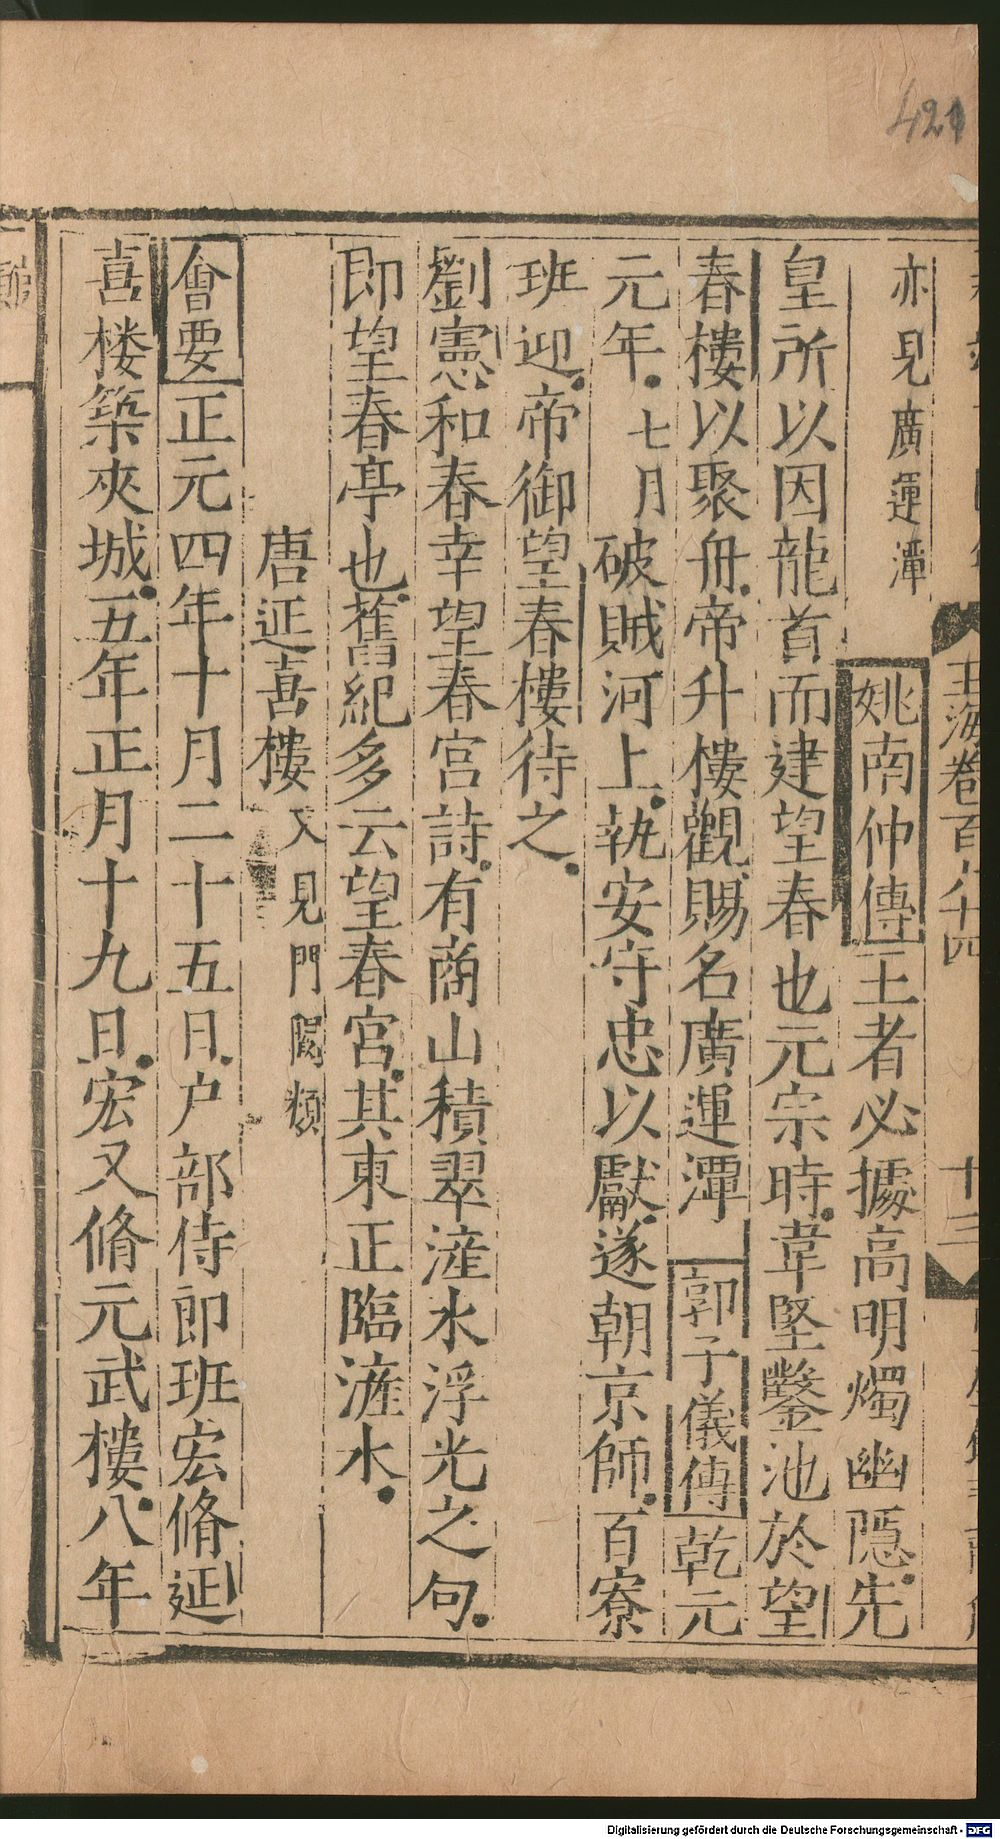 421
玉海卷百八十四
十三
亦見廣運潭
姚南仲傳王者必據高明燭幽隱先
皇所以因龍首而建望春也元宗時韋堅鑿池於望
春樓以聚舟帝升樓觀賜名廣運潭郭子儀傳乾元
元年七月破賊河上執安守忠以獻遂朝京師百寮
班迎帝御望春樓待之
劉憲和春幸望春宮詩有商山積翠滻水浮光之句
即望春亭也舊紀多云望春宮其東正臨滻水
唐延喜樓又見門闕類
會要正元四年十月二十五日户部侍郎班宏脩延
喜楼築夾城五年正月十九日宏又脩元武樓八年
Digitalisierung gefördert durch die Deutsche Forschungsgemeinschaft - DFG